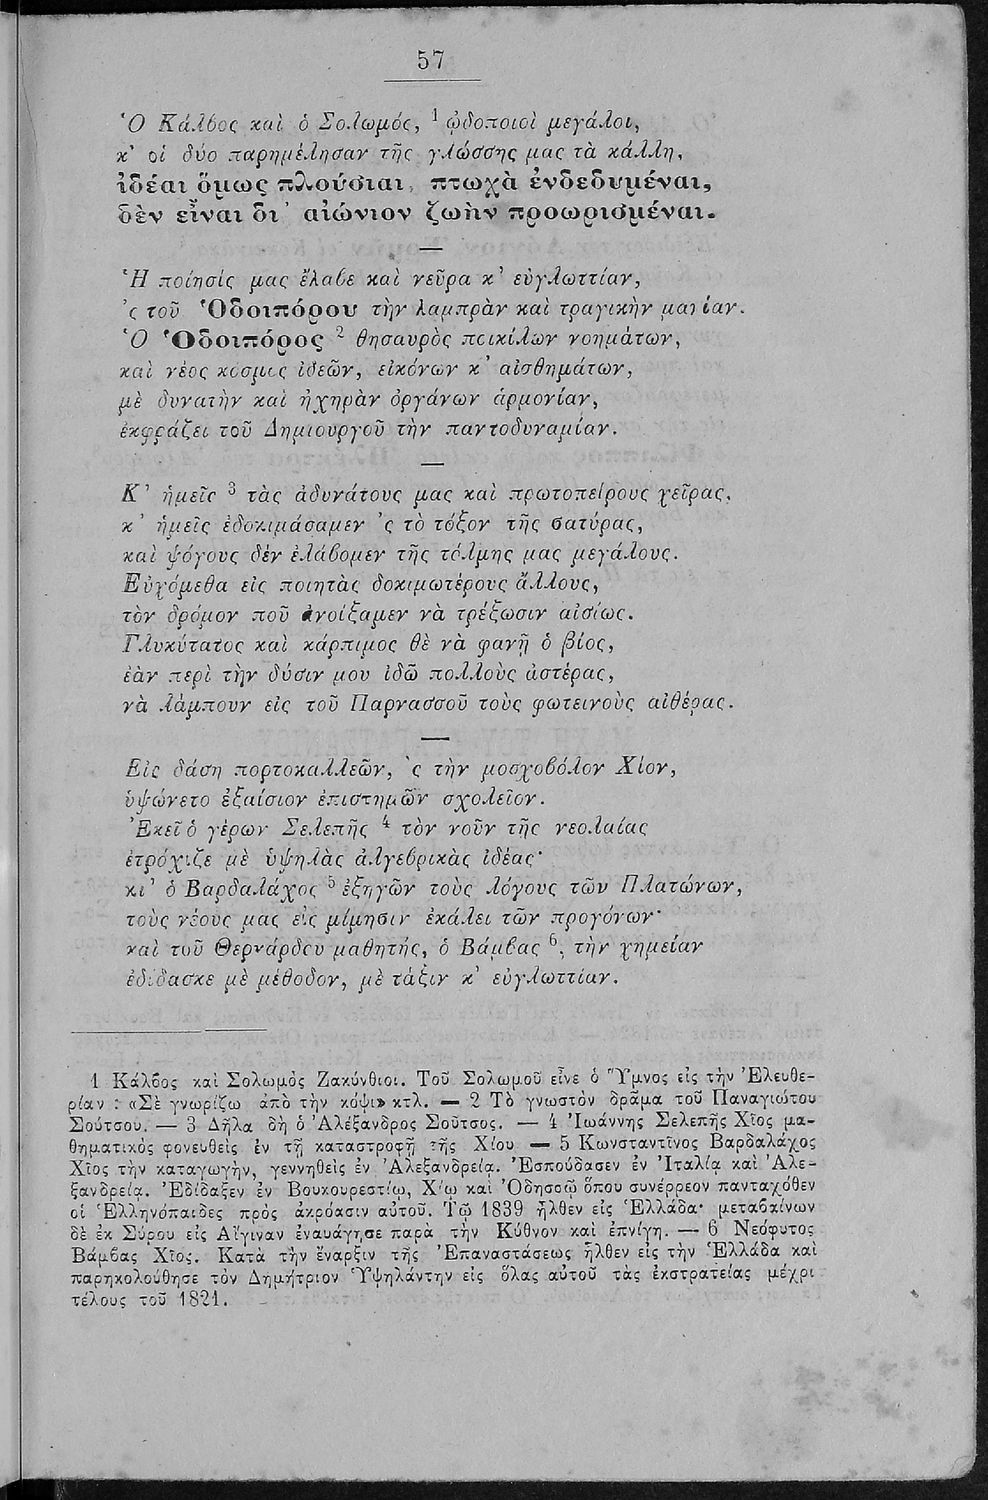 57
Ὁ Κάλβος καὶ ὁ Σολωμός, 1 ᾠδοποιοὶ μεγάλοι,
κ' οἱ δύο παρημέλησαν τῆς γλώσσης μας τὰ κάλλη,
ἰδέαι ὅμως πλούσιαι, πτωχὰ ἐνδεδυμέναι,
δὲν εἶναι δι' αἰώνιον ζωὴν προωρισμέναι.
—
Ἡ ποίησίς μας ἔλαβε καὶ νεῦρα κ' εὐγλωττίαν,
'ς τοῦ Ὁδοιπόρου τὴν λαμπρὰν καὶ τραγικὴν μανίαν.
Ὁ Ὁδοιπόρος 2 θησαυρὸς ποικίλων νοημάτων,
καὶ νέος κόσμος ἰδεῶν, εἰκόνων κ' αἰσθημάτων,
μὲ δυνατὴν καὶ ἠχηρὰν ὀργάνων ἁρμονίαν,
ἐκφράζει τοῦ Δημιουργοῦ τὴν παντοδυναμίαν.
—
Κ' ἡμεῖς 3 τὰς ἀδυνάτους μας καὶ πρωτοπείρους χεῖρας,
κ' ἡμεῖς ἐδοκιμάσαμεν 'ς τὸ τόξον τῆς σατύρας,
καὶ ψόγους δὲν ἐλάβομεν τῆς τόλμης μας μεγάλους.
Εὐχόμεθα εἰς ποιητὰς δοκιμωτέρους ἄλλους,
τὸν δρόμον ποῦ ἀνοίξαμεν νὰ τρέξωσιν αἰσίως.
Γλυκύτατος καὶ κάρπιμος θὲ νὰ φανῇ ὁ βίος,
ἐὰν περὶ τὴν δύσιν μου ἰδῶ πολλοὺς ἀστέρας,
νὰ λάμπουν εἰς τοῦ Παρνασσοῦ τοὺς φωτεινοὺς αἰθέρας.
—
Εἰς δάση πορτοκαλλεῶν, 'ς τὴν μοσχοβόλον Χίον,
ὑψώνετο ἐξαίσιον ἐπιστημῶν σχολεῖον.
Ἐκεῖ ὁ γέρων Σελεπῆς 4 τὸν νοῦν τῆς νεολαίας
ἐτρόχιζε μὲ ὑψηλὰς ἀλγεβρικὰς ἰδέας·
κι' ὁ Βαρδαλάχος 5 ἐξηγῶν τοὺς λόγους τῶν Πλατώνων,
τοὺς νέους μας εἰς μίμησιν ἐκάλει τῶν προγόνων·
καὶ τοῦ Θερνάρδου μαθητής, ὁ Βάμβας 6, τὴν χημείαν
ἐδίδασκε μὲ μέθοδον, μὲ τάξιν κ' εὐγλωττίαν.
1 Κάλβος καὶ Σολωμὸς Ζακύνθιοι. Τοῦ Σολωμοῦ εἶνε ὁ Ὕμνος εἰς τὴν Ἐλευθε-
ρίαν : «Σὲ γνωρίζω ἀπὸ τὴν κόψι» κτλ. — 2 Τὸ γνωστὸν δρᾶμα τοῦ Παναγιώτου
Σούτσου. — 3 Δῆλα δὴ ὁ Ἀλέξανδρος Σοῦτσος. — 4 Ἰωάννης Σελεπῆς Χῖος μα-
θηματικὸς φονευθεὶς ἐν τῇ καταστροφῇ τῆς Χίου — 5 Κωνσταντῖνος Βαρδαλάχος
Χῖος τὴν καταγωγὴν, γεννηθεὶς ἐν Ἀλεξανδρείᾳ. Ἐσπούδασεν ἐν Ἰταλίᾳ καὶ Ἀλε-
ξανδρείᾳ. Ἐδίδαξεν ἐν Βουκουρεστίῳ, Χίῳ καὶ Ὀδησσῷ ὅπου συνέρρεον πανταχόθεν
οἱ Ἑλληνόπαιδες πρὸς ἀκρόασιν αὐτοῦ. Τῷ 1839 ἦλθεν εἰς Ἑλλάδα· μεταβαίνων
δὲ ἐκ Σύρου εἰς Αἴγιναν ἐναυάγησε παρὰ τὴν Κύθνον καὶ ἐπνίγη. — 6 Νεόφυτος
Βάμβας Χῖος. Κατὰ τὴν ἔναρξιν τῆς Ἐπαναστάσεως ἦλθεν εἰς τὴν Ἑλλάδα καὶ
παρηκολούθησε τὸν Δημήτριον Ὑψηλάντην εἰς ὅλας αὐτοῦ τὰς ἐκστρατείας μέχρι
τέλους τοῦ 1821.